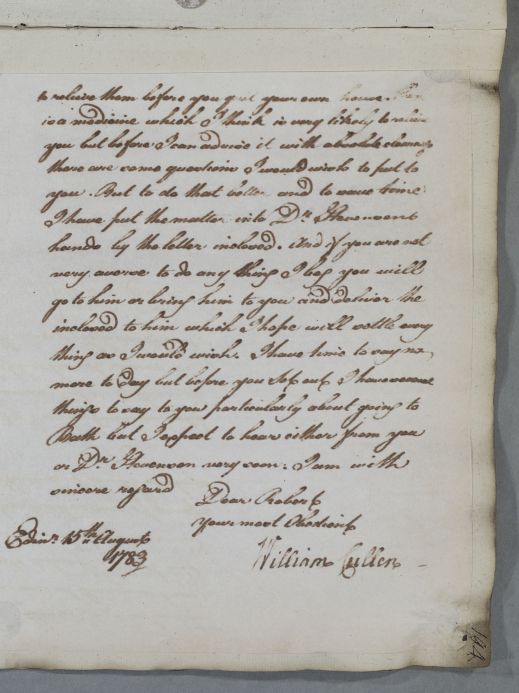 to relieve them before you quit your own house. There
is a medicine which I think is very likely to relieve
you but before I can advise it with absolute clearness
there are some questions I would wish to put to
you. But to do that better and to save time
I have put the matter into Dr. Stevensons
hands by the letter inclosed. And if you are not
very averse to do any thing I beg you will
go to him or bring him to you and deliver the
inclosed to him which I hope will settle every
thing as I would wish. I have time to say no
more to Day but before you set out I have some
things to say to you particularly about going to
Bath but I expect to hear either from you
or Dr. Stevenson very soon. I am with
sincere regard
Dear Robert
Your most Obedient
Edinr. 15th August
1783
William Cullen
144